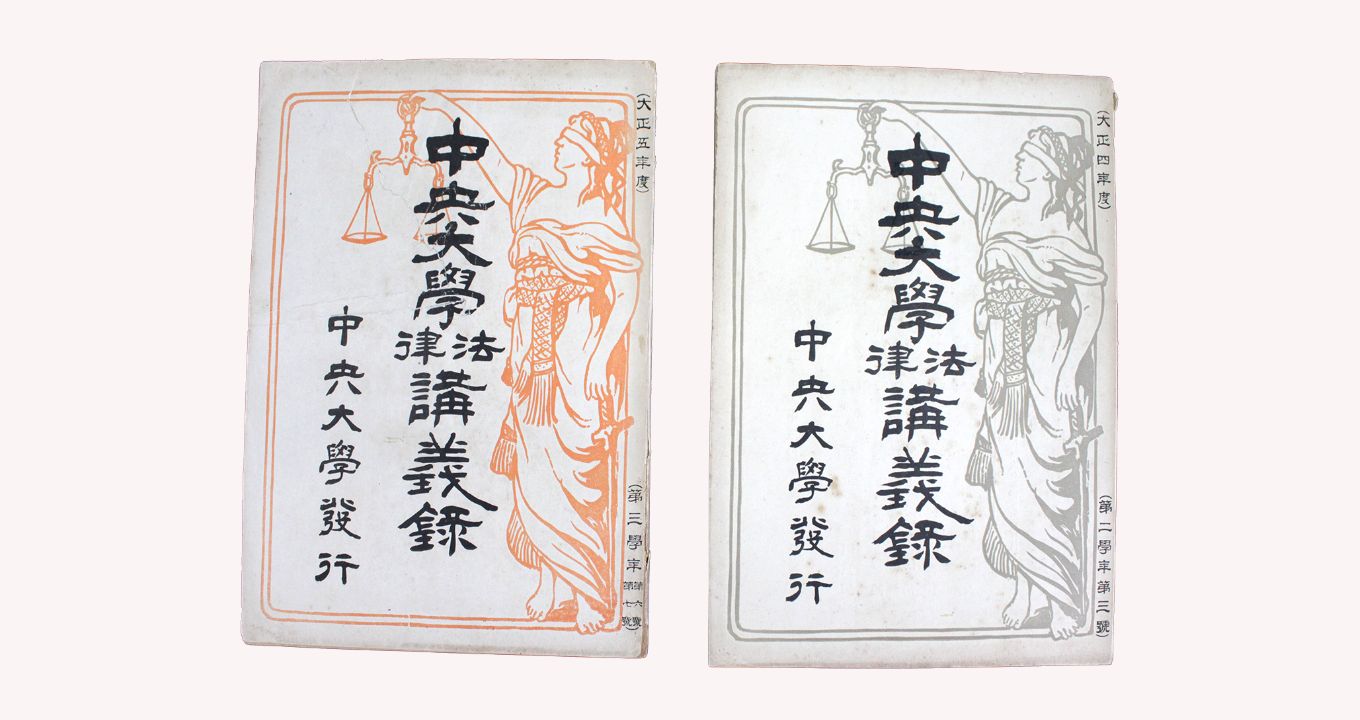 (大正五年度)
中央大學
法律
講義録
中央大學發行
(第三學年第六號第七號)
(大正四年度)
中央大學
法律
講義録
中央大學發行
(第二學年第三號)